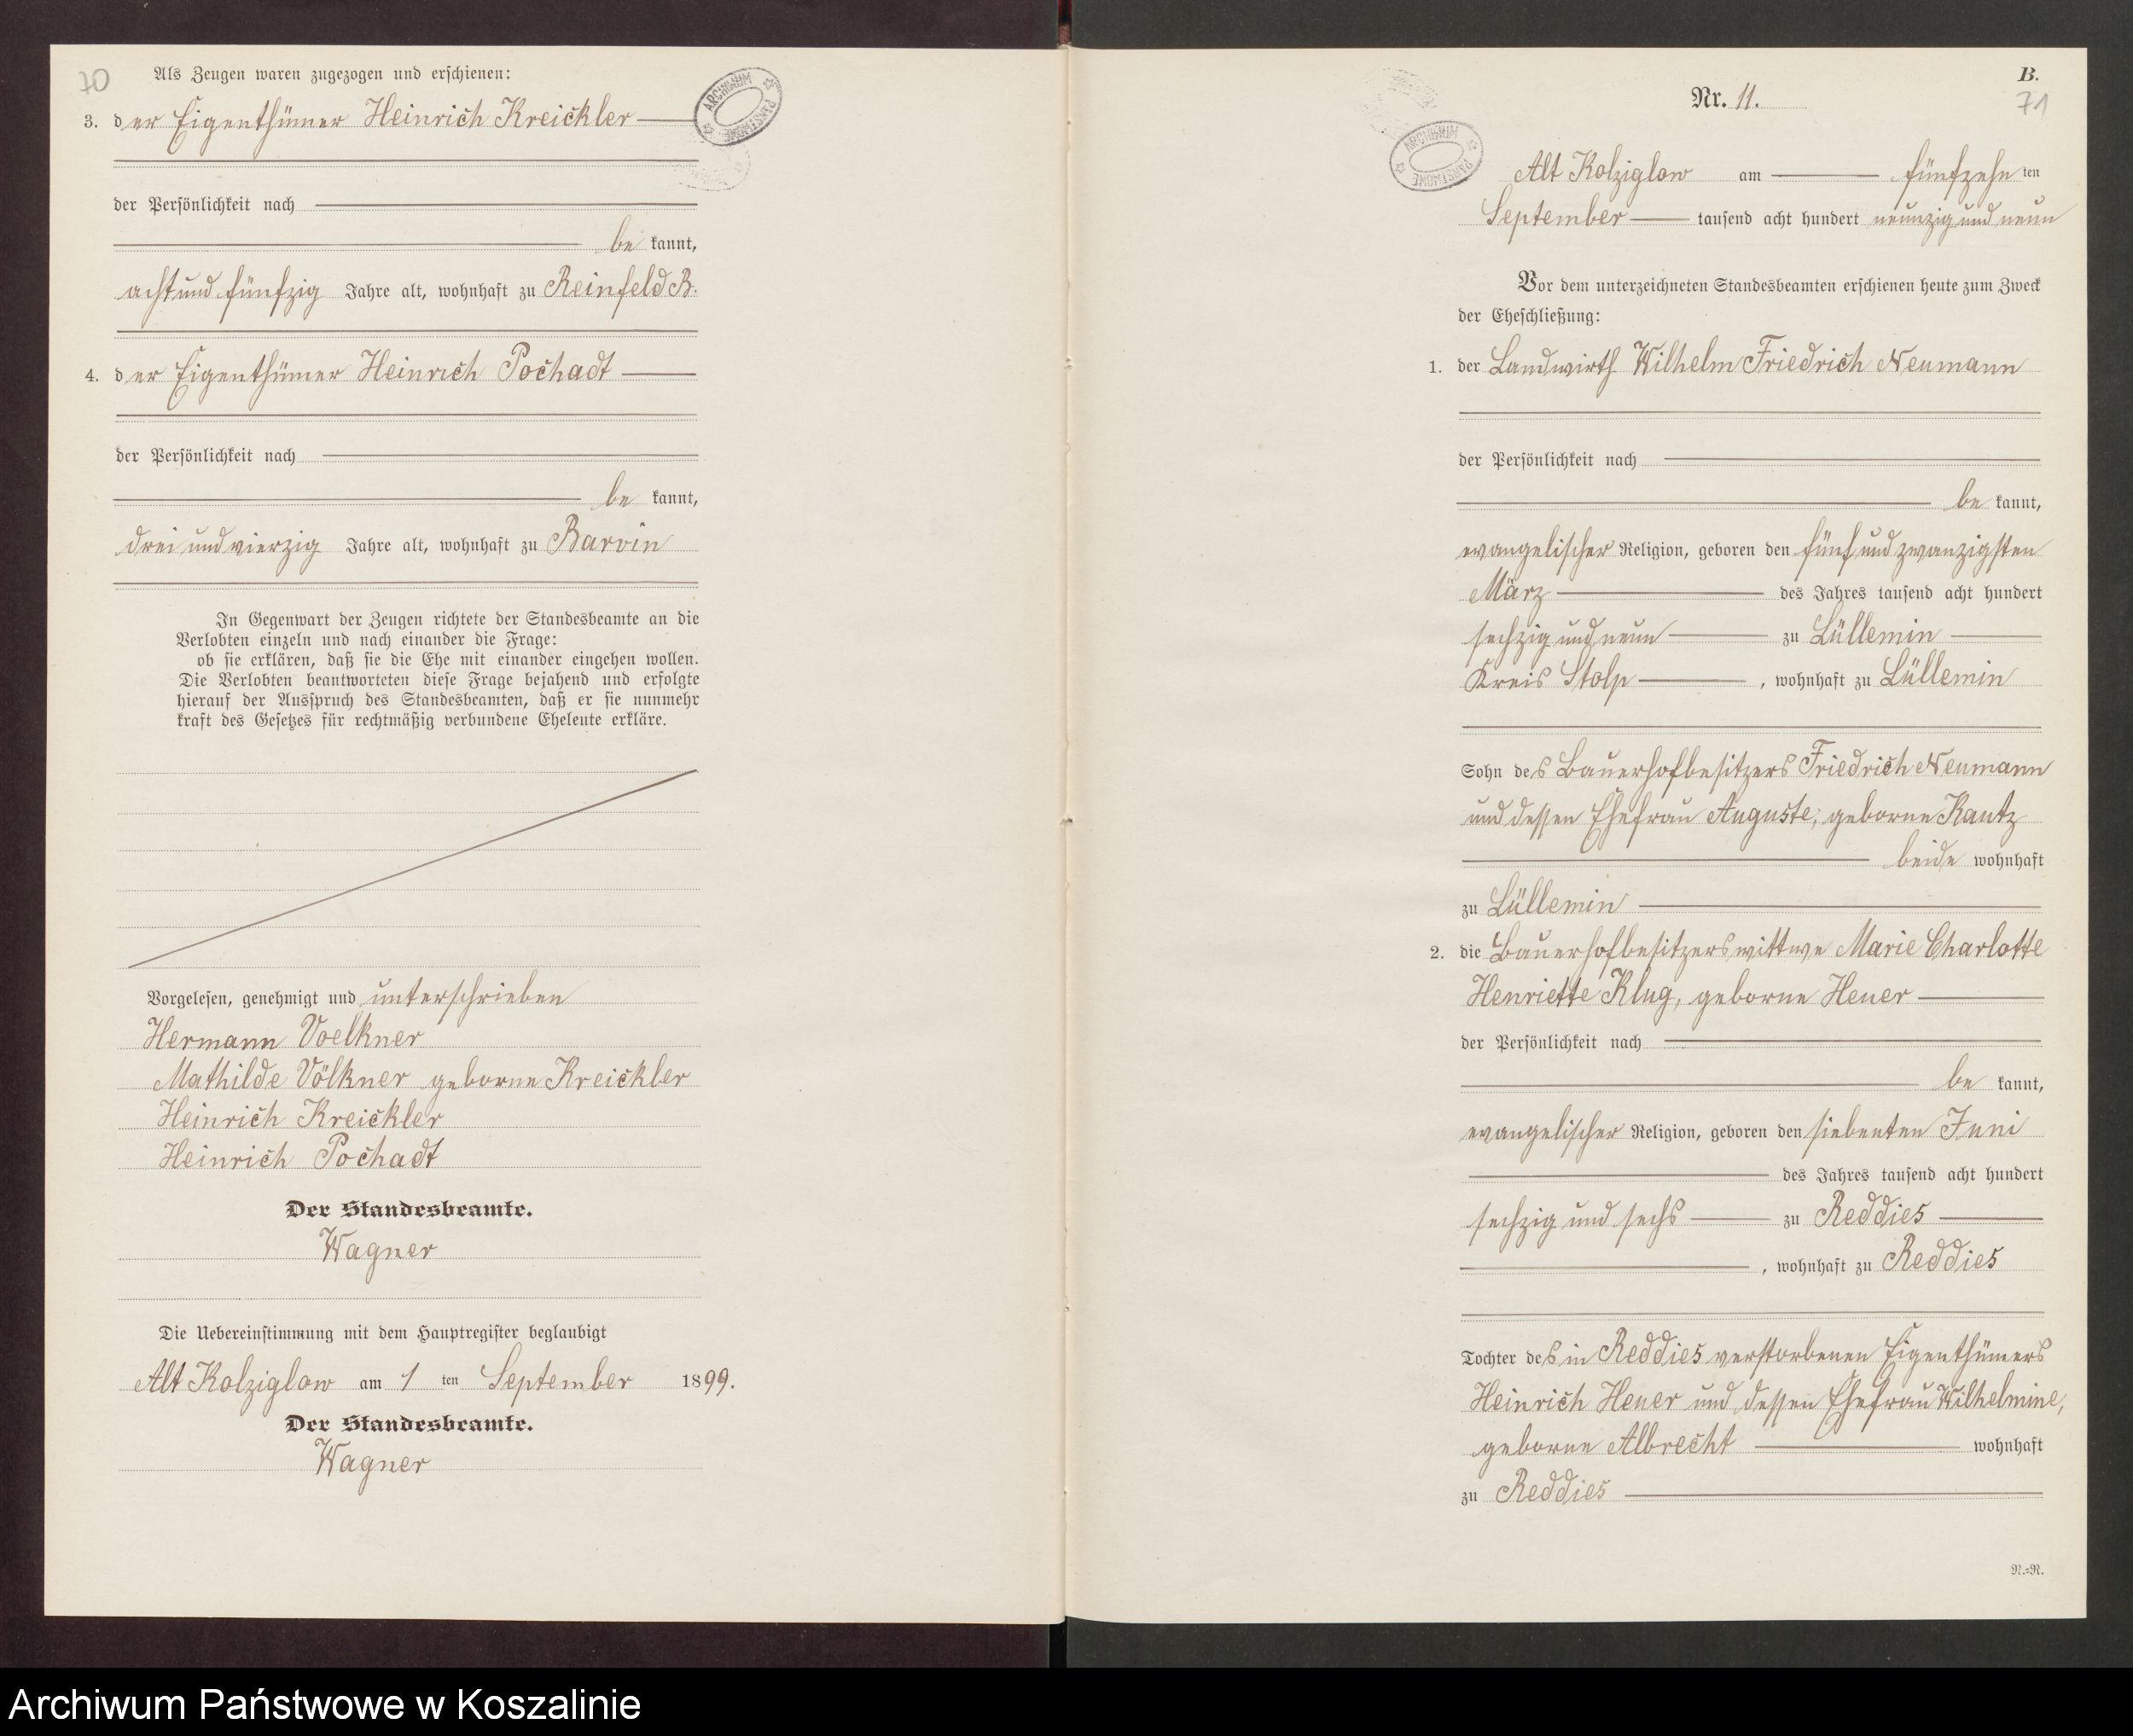 70
Als Zeugen waren zugezogen und erschienen:
3. der Eigenthümer Heinrich Kreickler
der Persönlichkeit nach
be kannt,
acht und fünfzig Jahre alt, wohnhaft zu Reinfeld B.
4. der Eigenthümer Heinrich Pochadt
der Persönlichkeit nach
be kannt,
drei und vierzig Jahre alt, wohnhaft zu Barvin
In Gegenwart der Zeugen richtete der Standesbeamte an die
Verlobten einzeln und nach einander die Frage:
ob sie erklären, daß sie die Ehe mit einander eingehen wollen.
Die Verlobten beantworteten diese Frage bejahend und erfolgte
hierauf der Ausspruch des Standesbeamten, daß er sie nunmehr
kraft des Gesetzes für rechtmäßig verbundene Eheleute erkläre.
Vorgelesen, genehmigt und unterschrieben
Hermann Voelkner
Mathilde Völkner geborne Kreickler
Heinrich Kreickler
Heinrich Pochadt
Der Standesbeamte.
Wagner
Die Uebereinstimmung mit dem Hauptregister beglaubigt
Alt Kolziglow am 1 ten September 1899.
Der Standesbeamte.
Wagner
ARCHIWUM PAŃSTWOWE
B.
71
Nr. 11.
ARCHIWUM PAŃSTWOWE
Alt Kolziglow am fünfzehn ten
September tausend acht hundert neunzig und neun
Vor dem unterzeichneten Standesbeamten erschienen heute zum Zweck
der Eheschließung:
1. der Landwirth Wilhelm Friedrich Neumann
der Persönlichkeit nach
be kannt,
evangelischer Religion, geboren den fünf und zwanzigsten
März des Jahres tausend acht hundert
sechzig und neun zu Lüllemin
Kreis Stolp, wohnhaft zu Lüllemin
Sohn des Bauerhofbesitzers Friedrich Neumann
und dessen Ehefrau Auguste, geborne Kautz
beide wohnhaft
zu Lüllemin
2. die Bauerhofbesitzerswittwe Marie Charlotte
Henriette Klug, geborne Heuer
der Persönlichkeit nach
be kannt,
evangelischer Religion, geboren den siebenten Juni
des Jahres tausend acht hundert
sechzig und sechs zu Reddies
, wohnhaft zu Reddies
Tochter des in Reddies verstorbenen Eigenthümers
Heinrich Heuer und dessen Ehefrau Wilhelmine,
geborne Albrecht wohnhaft
zu Reddies
N.=N.
Archiwum Państwowe w Koszalinie